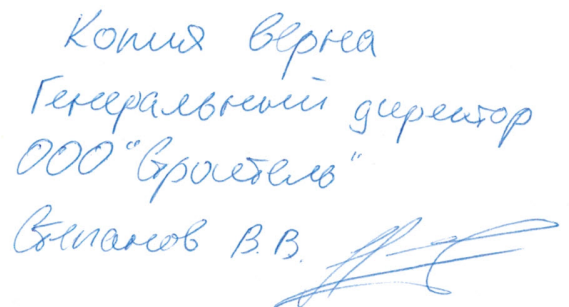 Копия верна
Генеральный директор
ООО "Строитель"
Степанов В.В.